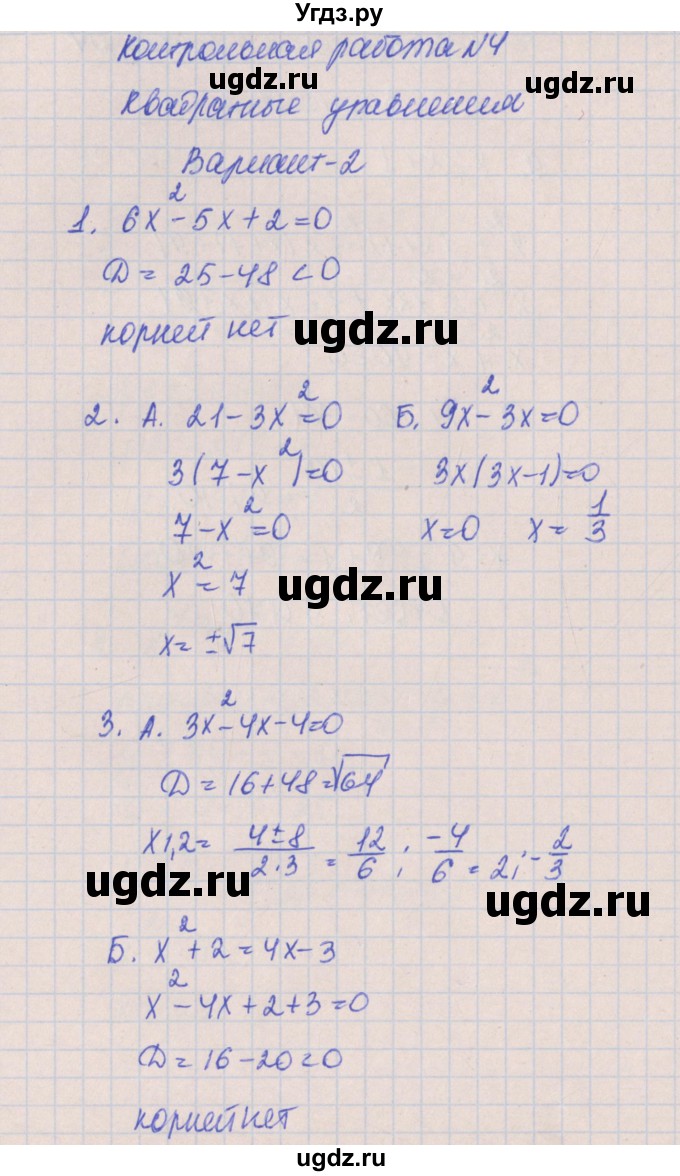 Угдз.ру
Контрольная работа №4
ugdz.ru ugdz.ru
Квадратные уравнения
Вариант-2
1. 6x² - 5x + 2 = 0
D = 25 - 48 < 0
корней нет
ugdz.ru
2. А. 21 - 3x² = 0 Б. 9x² - 3x = 0
3(7 - x²) = 0 3x(3x - 1) = 0
7 - x² = 0 x = 0 x = 1/3
x² = 7
ugdz.ru
x = ±√7
3. А. 3x² - 4x - 4 = 0
D = 16 + 48 = √64
x1,2 = (4 ± 8)/(2·3) = 12/6 ; -4/6 = 2; -2/3
ugdz.ru ugdz.ru
Б. x² + 2 = 4x - 3
x² - 4x + 2 + 3 = 0
D = 16 - 20 < 0
корней нет
ugdz.ru